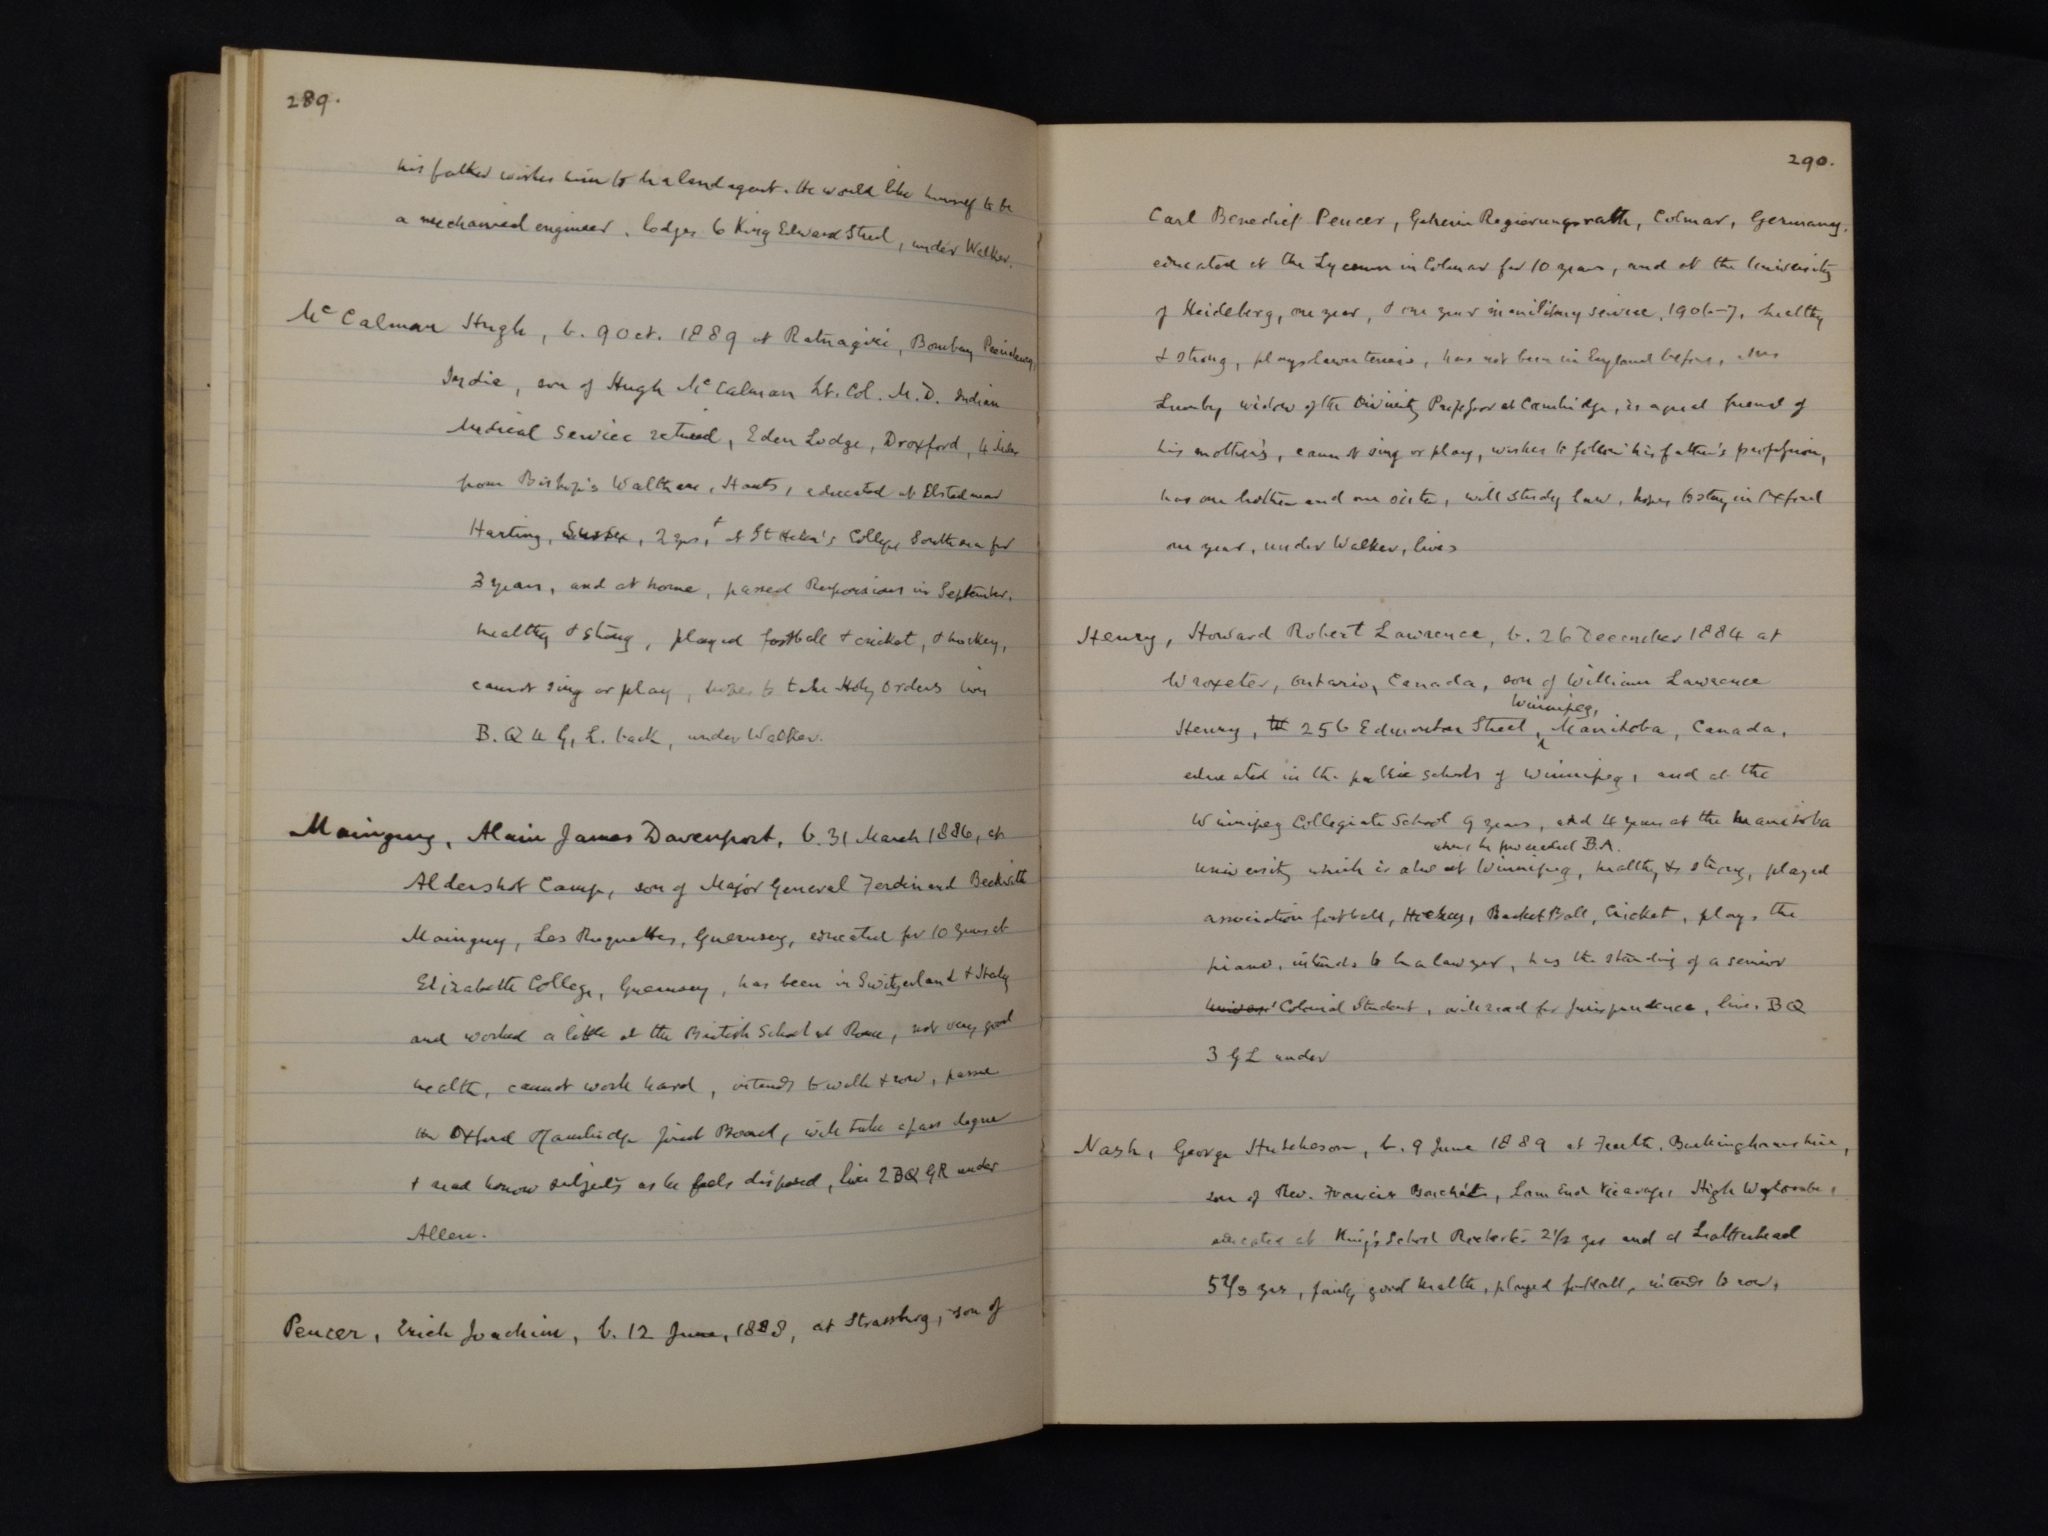 289.
his father wishes him to be a land agent. He would like himself to be
a mechanical engineer, lodges 6 King Edward Street, under Walker.
McCalman Hugh, b. 9 Oct. 1889 at Ratnagiri, Bombay Presidency,
India, son of Hugh McCalman Lt. Col. M.D. Indian
Medical Service retired, Eden Lodge, Droxford, 4 miles
from Bishop's Waltham, Hants, educated at Elsted near
Harting, Sussex, 2 yrs, + at St Helen's College Southsea for
3 years, and at home, passed Responsions in September.
healthy & strong, played football + cricket, + hockey,
cannot sing or play, hopes to take Holy Orders lives
B. Q 4 G, L. back, under Walker.
Mainguy, Alain James Davenport, b. 31 March 1886, at
Aldershot Camp, son of Major General Ferdinand Beckwith
Mainguy, Les Roquettes, Guernsey, educated for 10 years at
Elizabeth College, Guernsey, has been in Switzerland + Italy
and worked a little at the British School at Rome, not very good
health, cannot work hard, intends to walk + row, passed
the Oxford & Cambridge Joint Board, will take a pass degree
+ read honour subjects as he feels disposed, lives 2 BQ GR under
Allen.
Peucer, Erich Joachim, b. 12 June, 1888, at Strassburg, son of
290.
Carl Benedict Peucer, Geheim Regierungsrath, Colmar, Germany.
educated at the Lyceum in Colmar for 10 years, and at the University
of Heidelberg, one year, & one year in military service, 1906-7, healthy
& strong, plays lawn tennis, has not been in England before, Mrs
Lumby widow of the Divinity Professor at Cambridge, is a great friend of
his mother's, cannot sing or play, wishes to follow his father's profession,
has one brother and one sister, will study law, hopes to stay in Oxford
one year, under Walker, lives
Henry, Howard Robert Lawrence, b. 26 December 1884 at
Wroxeter, Ontario, Canada, son of William Lawrence
Winnipeg,
Henry, 256 Edmonton Street, Manitoba, Canada,
educated in the public schools of Winnipeg, and at the
Winnipeg Collegiate School 9 years, and 4 years at the Manitoba
where he proceeded B.A.
University which is also at Winnipeg, healthy & strong, played
association football, Hockey, Basket Ball, Cricket, plays the
piano, intends to be a lawyer, has the standing of a senior
Colonial Student, will read for Jurisprudence, lives BQ
3 GL under
Nash, George Hutcheson, b. 9 June 1889 at Buckinghamshire,
son of Rev. Francis Lane End Vicarage, High Wycombe,
educated at King's School Rochester 2 1/2 yrs and at Leatherhead
5 2/3 yrs, fairly good health, played football, intends to row,